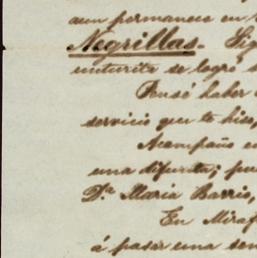 aun permanece en
Negrillas. Sig
unturita se logró
Pensé haber
servicio que te hice,
Acompaño
una difunta; pu
D.ª Maria Barris,
En Miraf
á pasar una sem